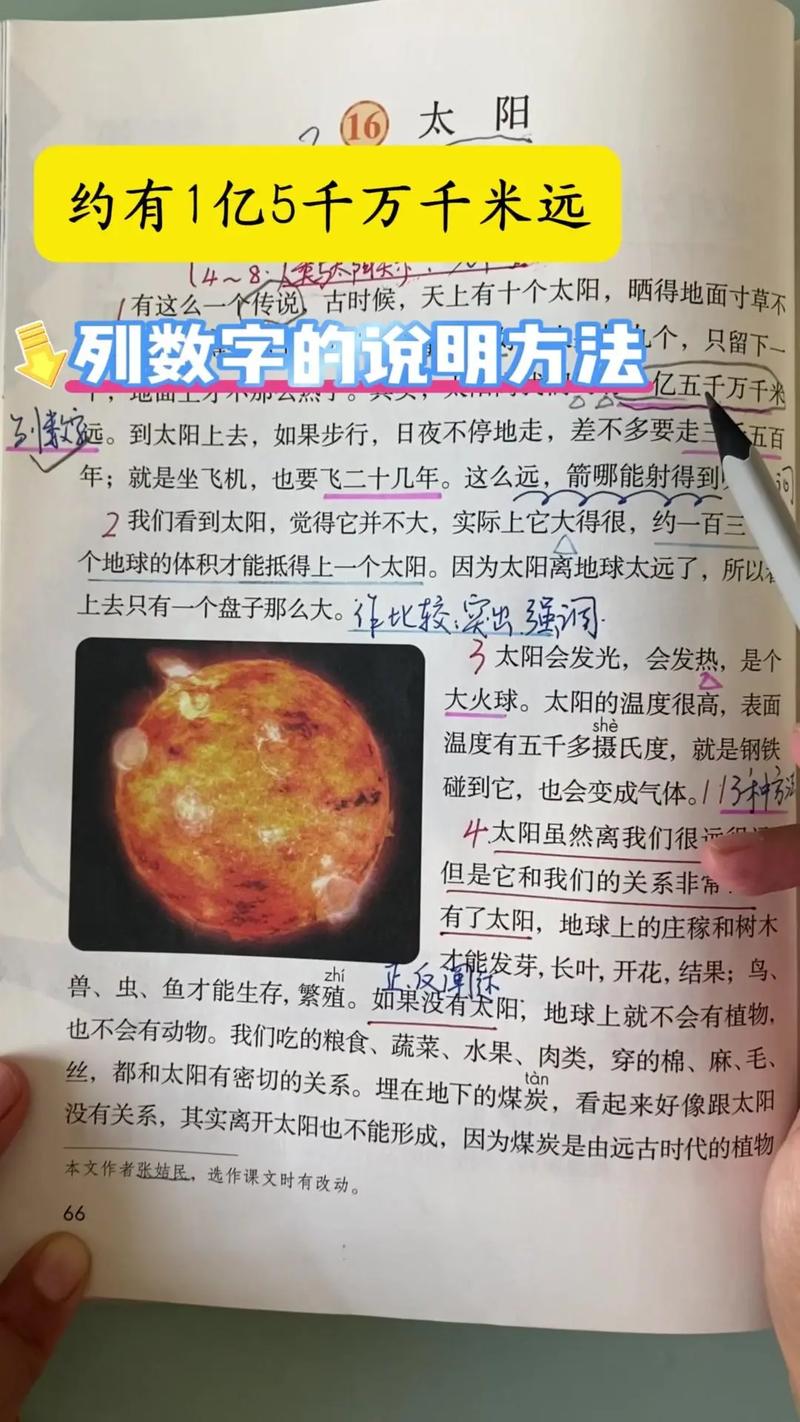 16 太 阳
约有1亿5千万千米远
(4～8:
1有这么一个传说，古时候，天上有十个太阳，晒得地面寸草不
九个，只留下一
列数字的说明方法
亿五千万千米
列数字
远。到太阳上去，如果步行，日夜不停地走，差不多要走三 五百
年；就是坐飞机，也要飞二十几年。这么远，箭哪能射得到
2 我们看到太阳，觉得它并不大，实际上它大得很，约一百三
个地球的体积才能抵得上一个太阳。因为太阳离地球太远了，所以看
上去只有一个盘子那么大。作比较：突出 强调
3 太阳会发光，会发热，是个
大火球。太阳的温度很高，表面
shè
温度有五千多摄氏度，就是钢铁
碰到它，也会变成气体。
4.太阳虽然离我们很远
但是它和我们的关系非常
有了太阳，地球上的庄稼和树木
才能发芽，长叶，开花，结果；鸟、
zhí
兽、虫、鱼才能生存，繁殖。如果没有太阳，地球上就不会有植物，
也不会有动物。我们吃的粮食、蔬菜、水果、肉类，穿的棉、麻、毛、
丝，都和太阳有密切的关系。埋在地下的煤炭，看起来好像跟太阳
tàn
没有关系，其实离开太阳也不能形成，因为煤炭是由远古时代的植物
本文作者张姞民，选作课文时有改动。
66